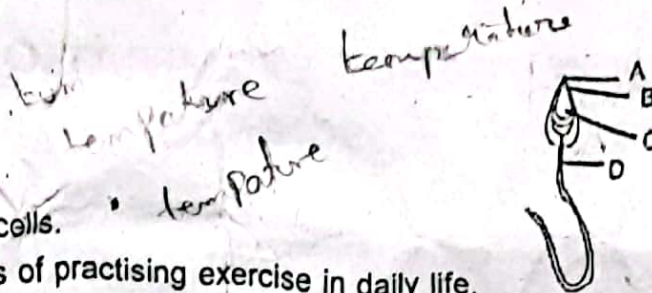 temperature
tempature
tempature
A
B
C
D
cells.
s of practising exercise in daily life.